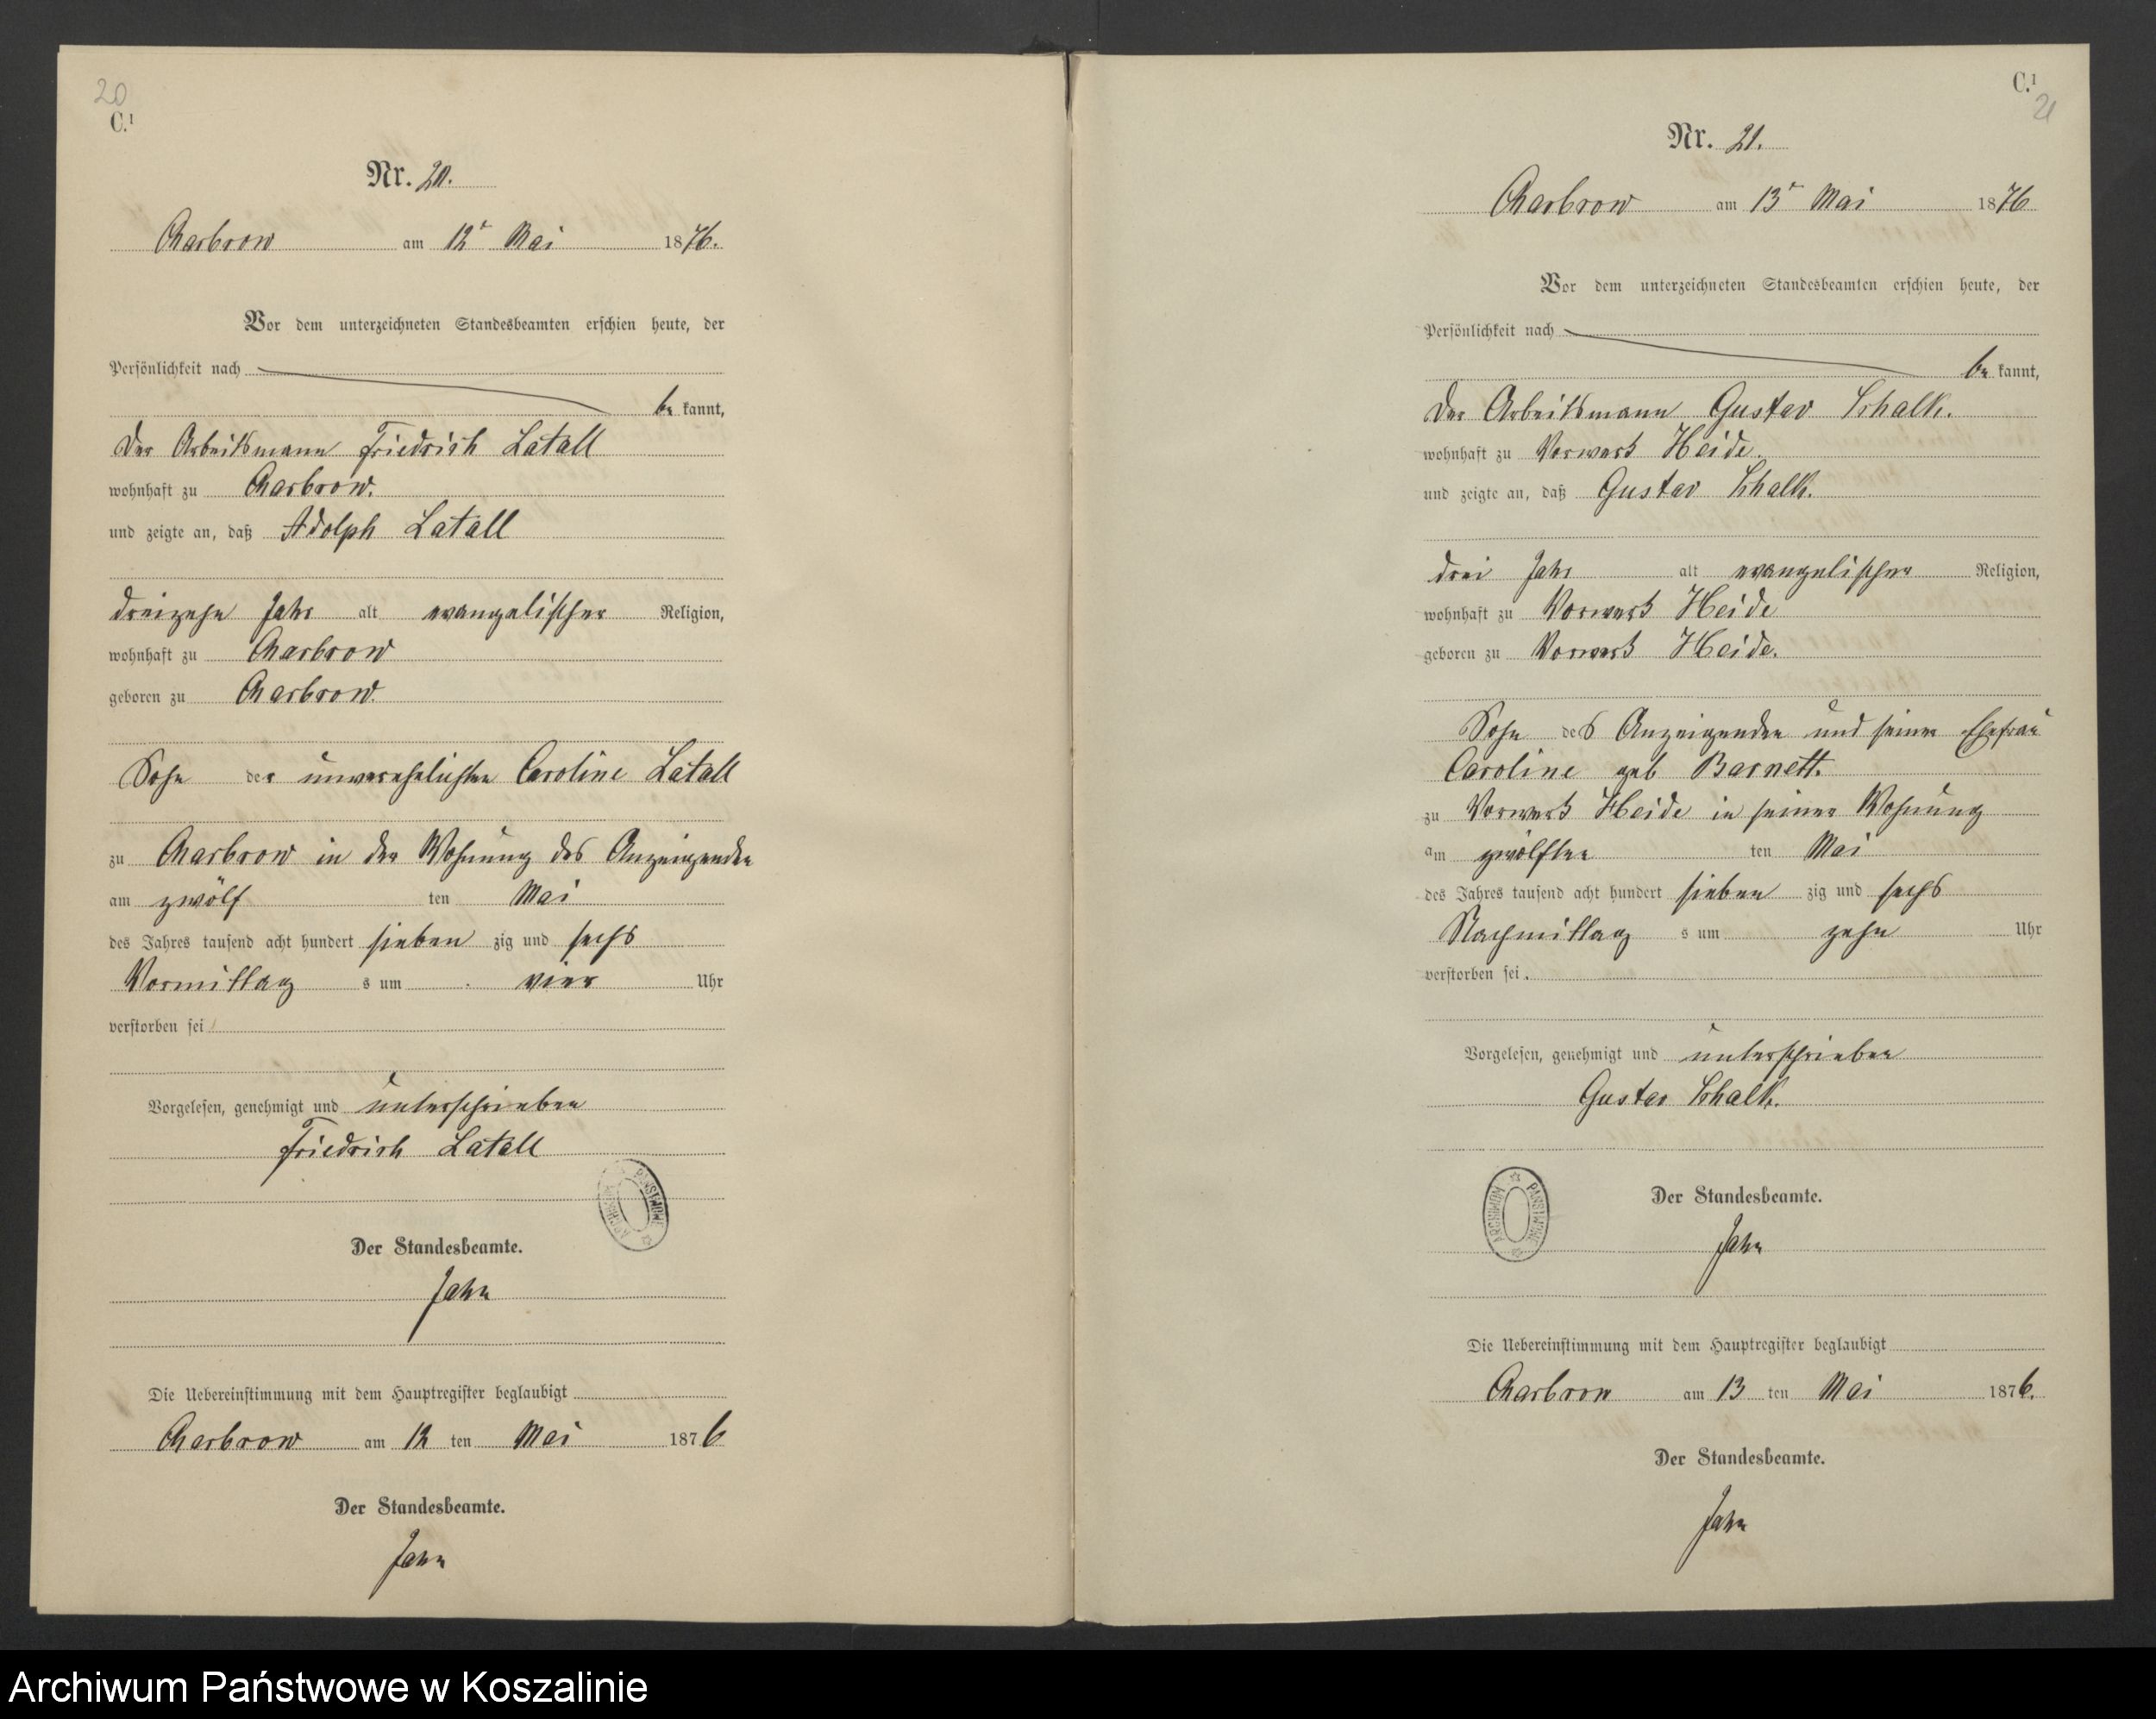 20
C.¹
Nr. 20.
Charbrow am 12ᵗ Mai 1876.
Vor dem unterzeichneten Standesbeamten erschien heute, der
Persönlichkeit nach
be kannt,
der Arbeitsmann Friedrich Latall
wohnhaft zu Charbrow.
und zeigte an, daß Adolph Latall
dreizehn Jahr alt evangelischer Religion,
wohnhaft zu Charbrow
geboren zu Charbrow.
Sohn der unverehelichten Caroline Latall
zu Charbrow in der Wohnung des Anzeigenden
am zwölf ten Mai
des Jahres tausend acht hundert sieben zig und sechs
Vormittag s um vier Uhr
verstorben sei
Vorgelesen, genehmigt und unterschrieben
Friedrich Latall
ARCHIWUM PAŃSTWOWE
Der Standesbeamte.
Jahn
Die Uebereinstimmung mit dem Hauptregister beglaubigt
Charbrow am 12 ten Mai 1876
Der Standesbeamte.
Jahn
C.¹
21
Nr. 21.
Charbrow am 13ᵗ Mai 1876
Vor dem unterzeichneten Standesbeamten erschien heute, der
Persönlichkeit nach
be kannt,
der Arbeitsmann Gustav Schalk.
wohnhaft zu Vorwerk Heide.
und zeigte an, daß Gustav Schalk.
drei Jahr alt evangelischer Religion,
wohnhaft zu Vorwerk Heide
geboren zu Vorwerk Heide.
Sohn des Anzeigenden und seiner Ehefrau
Caroline geb Barnett.
zu Vorwerk Heide in seiner Wohnung
am zwölften ten Mai
des Jahres tausend acht hundert sieben zig und sechs
Nachmittag s um zehn Uhr
verstorben sei.
Vorgelesen, genehmigt und unterschrieben
Gustav Schalk.
ARCHIWUM PAŃSTWOWE
Der Standesbeamte.
Jahn
Die Uebereinstimmung mit dem Hauptregister beglaubigt
Charbrow am 13 ten Mai 1876.
Der Standesbeamte.
Jahn
Archiwum Państwowe w Koszalinie